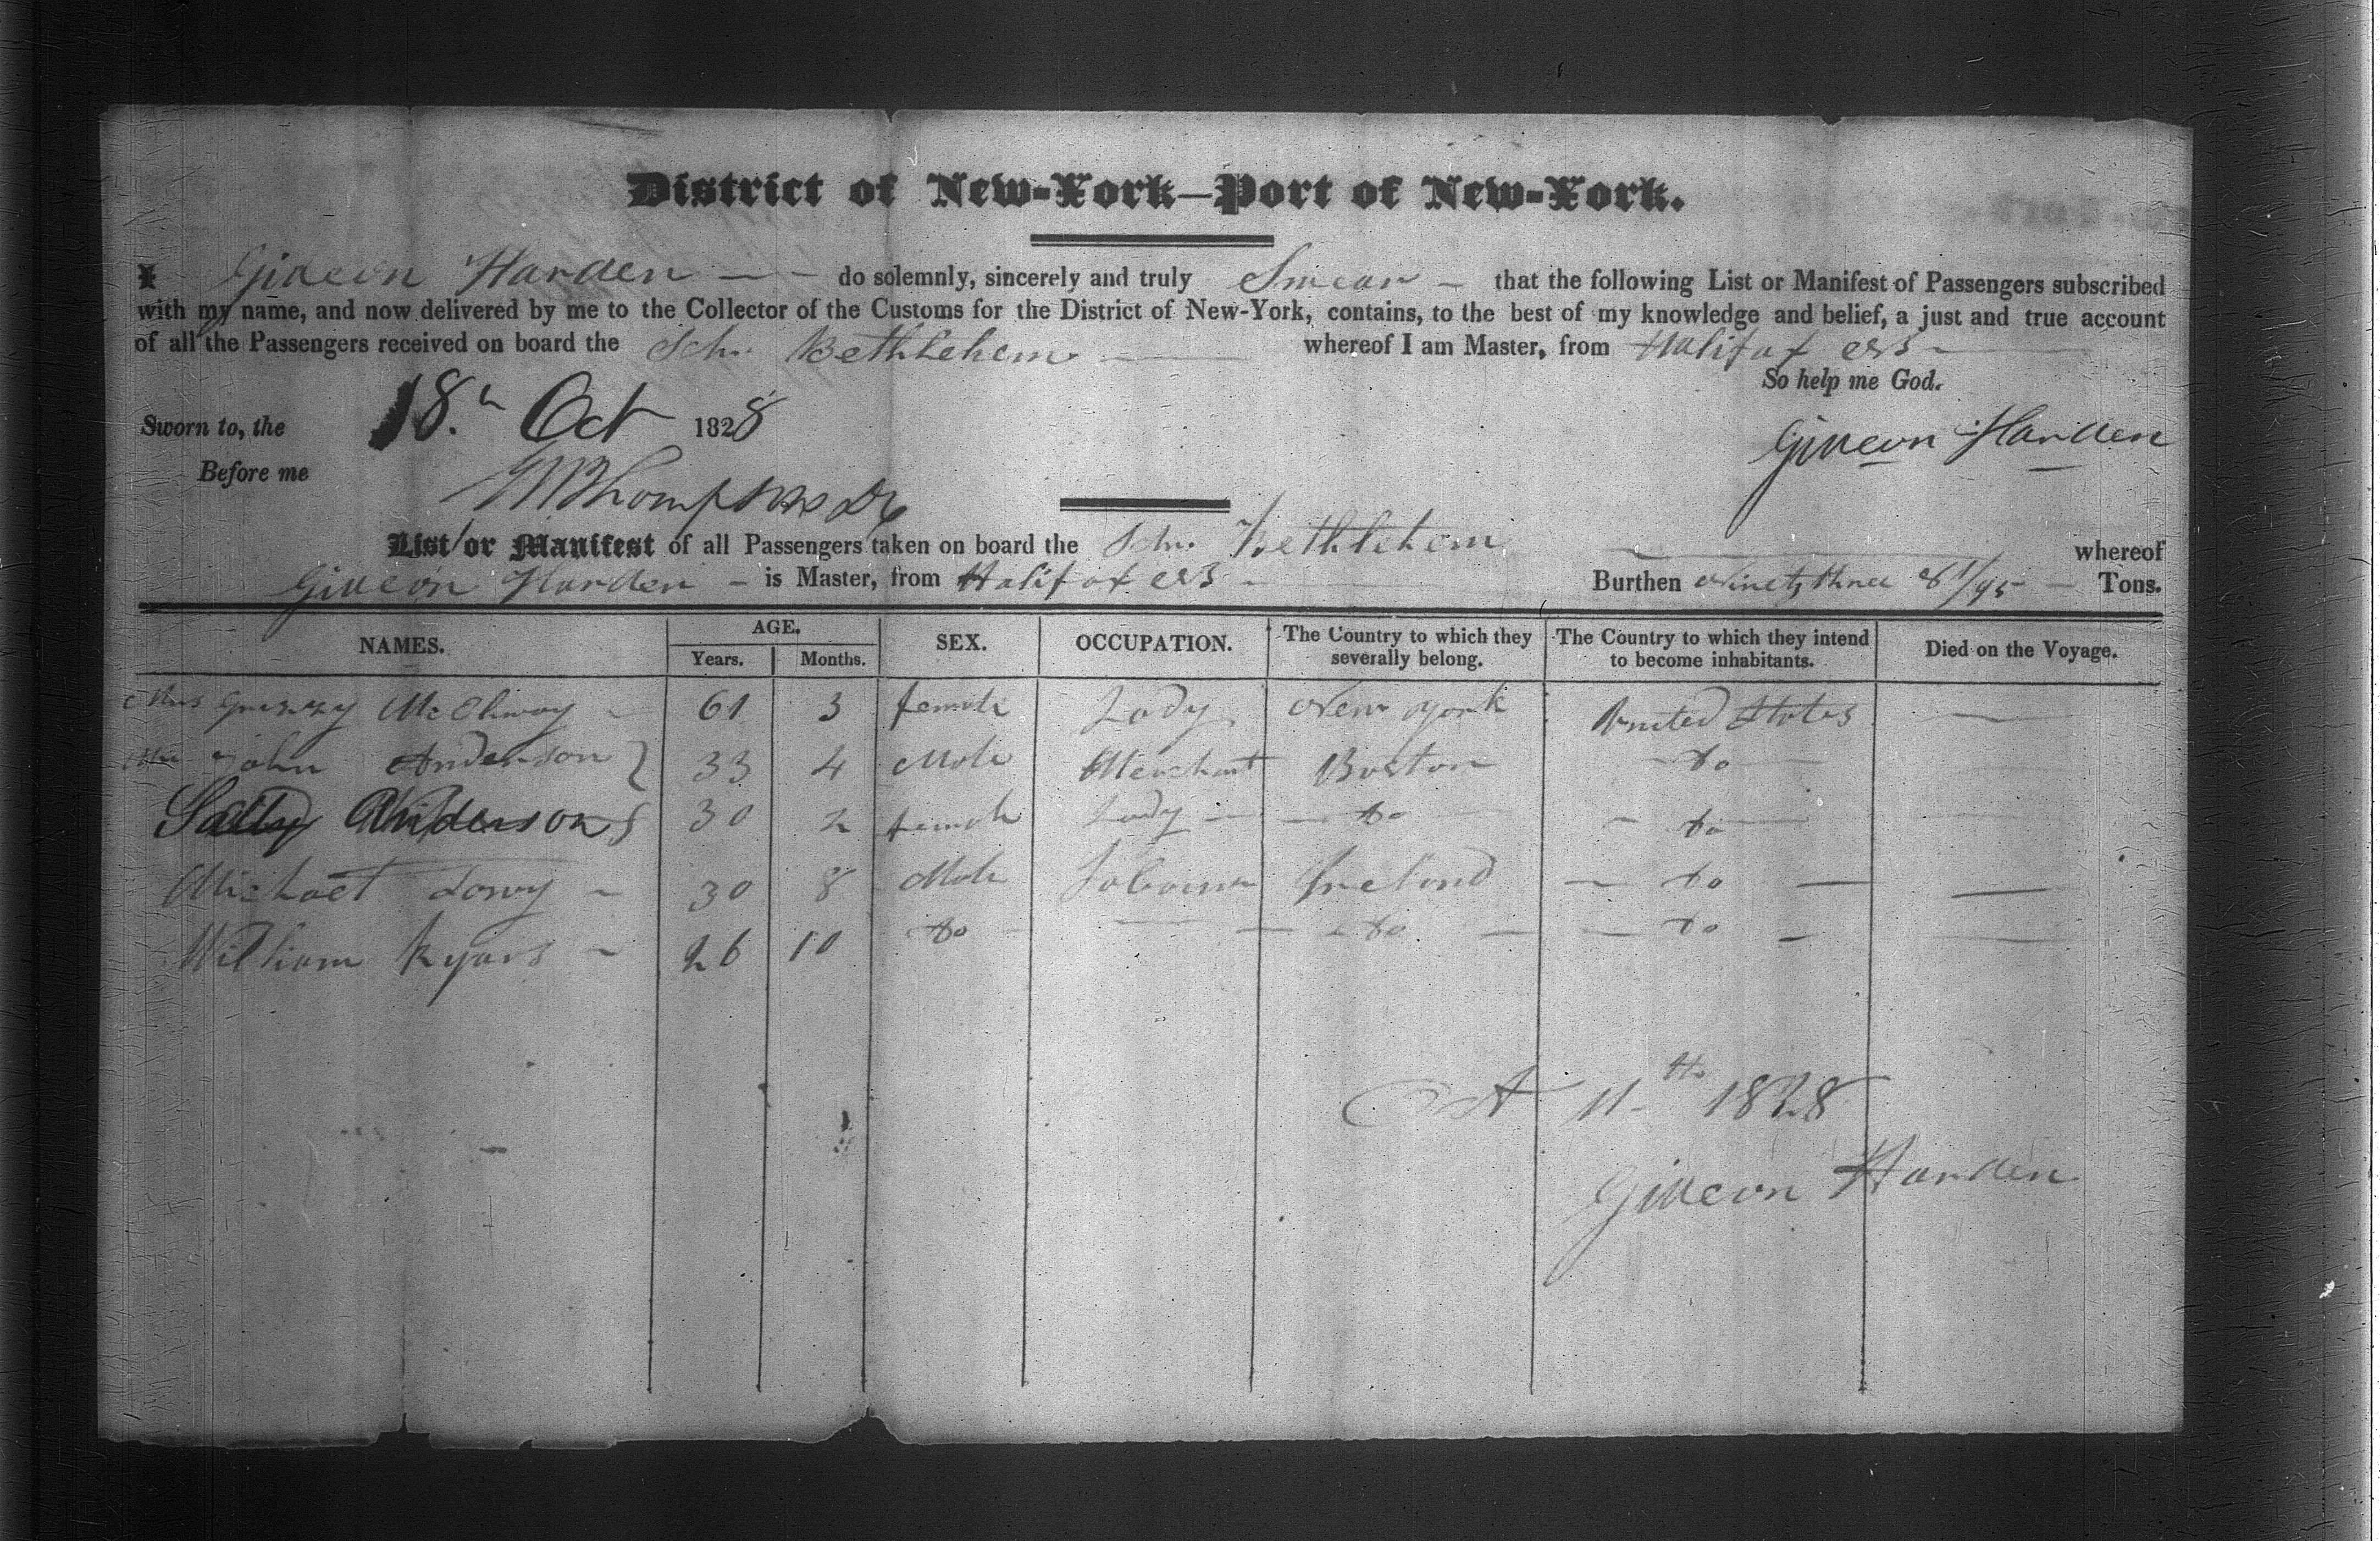 District of New-York—Port of New-York.
I Gideon Harden — — do solemnly, sincerely and truly Swear — that the following List or Manifest of Passengers subscribed
with my name, and now delivered by me to the Collector of the Customs for the District of New-York, contains, to the best of my knowledge and belief, a just and true account
of all the Passengers received on board the Schr. Bethlehem — whereof I am Master, from Halifax NS —
So help me God.
Sworn to, the 18th Oct 1828
Gideon Harden
Before me Thompson
List or Manifest of all Passengers taken on board the Schr. Bethlehem — whereof
Gideon Harden — is Master, from Halifax NS — Burthen Ninety three 81/95 — Tons.
NAMES. AGE. Years. Months. SEX. OCCUPATION. The Country to which they severally belong. The Country to which they intend to become inhabitants. Died on the Voyage.
Mrs — 61 3 female Lady New york United States —
Mr John Anderson } 33 4 Male Merchant Boston — Do —
Sally Anderson } 30 2 female Lady — — Do — — Do —
Michael — 30 8 Male Labourer Ireland — Do — —
William Ryars — 26 10 Do — — — Do — — Do — —
Oct 11th 1828
Gideon Harden